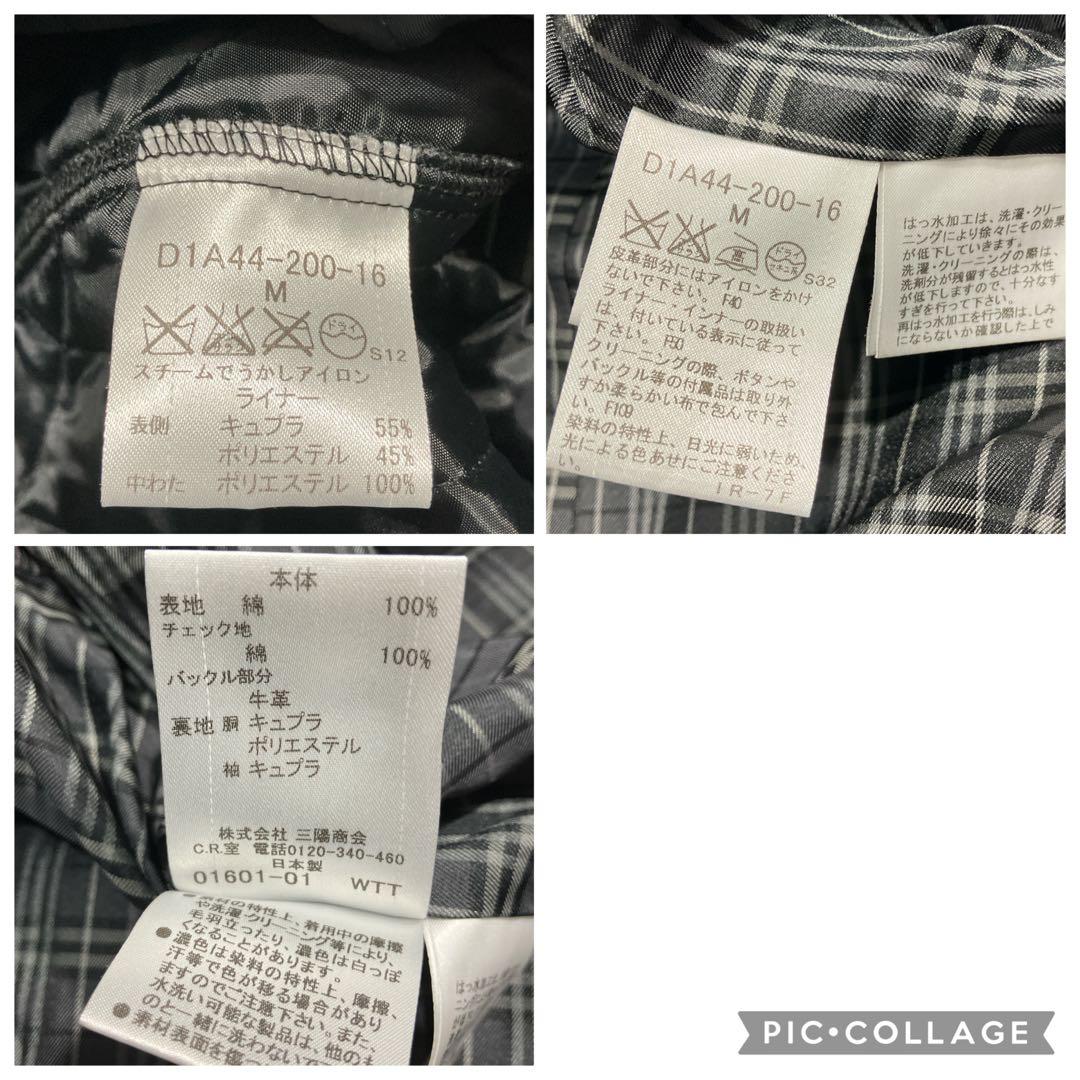 D1A44-200-16
M
ドライ
S12
スチームでうかしアイロン
ライナー
表側 キュプラ 55%
ポリエステル 45%
中わた ポリエステル 100%
D1A44-200-16
M
高
ドライ
セキユ系
S32
皮革部分にはアイロンをかけ
ないで下さい。F40
ライナー・インナーの取扱い
は、付いている表示に従って
下さい。F50
クリーニングの際、ボタンや
バックル等の付属品は取り外
すか柔らかい布で包んで下さ
い。F109
染料の特性上、日光に弱いため、
光による色あせにご注意くださ
い。
IR-7F
はっ水加工は、洗濯・クリー
ニングにより徐々にその効果
が低下していきます。
洗濯・クリーニングの際は、
洗剤分が残留するとはっ水性
が低下しますので、十分なす
すぎを行って下さい。
再はっ水加工を行う際は、しみ
にならないか確認した上で
本体
表地 綿 100%
チェック地
綿 100%
バックル部分
牛革
裏地 胴 キュプラ
ポリエステル
袖 キュプラ
株式会社 三陽商会
C.R.室 電話0120-340-460
日本製
01601-01 WTT
●素材の特性上、着用中の摩擦
や洗濯・クリーニング等により、
毛羽立ったり、濃色は白っぽ
くなることがあります。
●濃色は染料の特性上、摩擦、
汗等で色が移る場合があり
ますのでご注意下さい。また、
水洗い可能な製品は、他のも
のと一緒に洗わないで
●素材表面を傷
PIC•COLLAGE